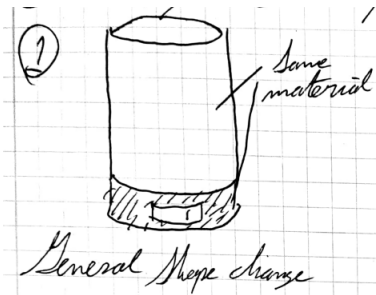 1
Same
material
General Shape change